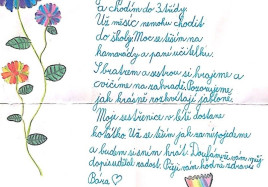 a chodím do 3. třídy.
Už měsíc nemohu chodit
do školy. Moc se těším na
kamarády a paní učitelku.
S bratrem a sestrou si hrajeme a
cvičíme na zahradě. Pozorujeme
jak krásně rozkvétají jabloně.
Moje sestřenice v létě dostane
koťátko. Už se těším jak za ní pojedeme
a budem si s ním hrát. Doufám, že vám můj
dopis udělal radost. Přeji vám hodně zdraví
Bára